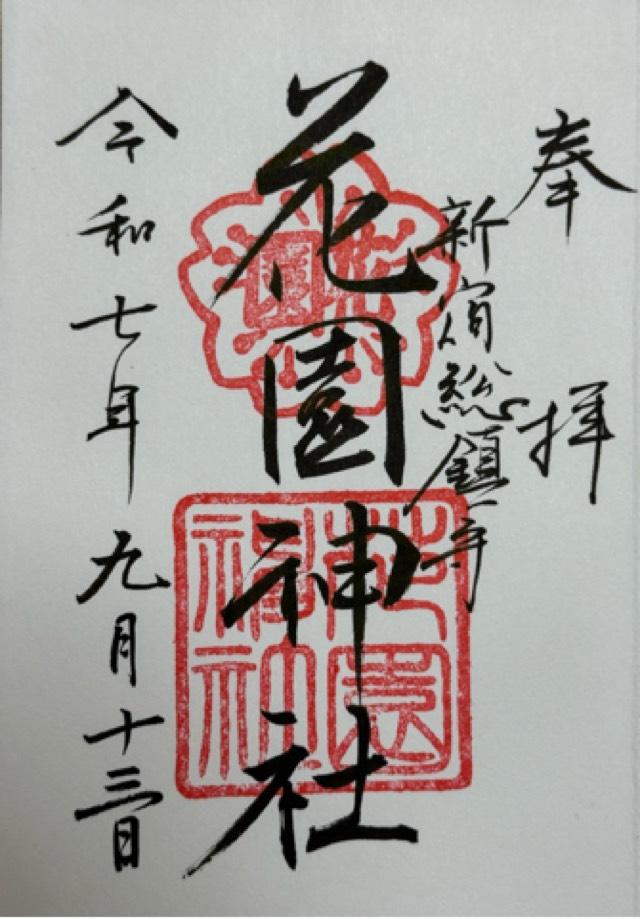 奉拝
新宿総鎮守
花園神社
令和七年九月十三日